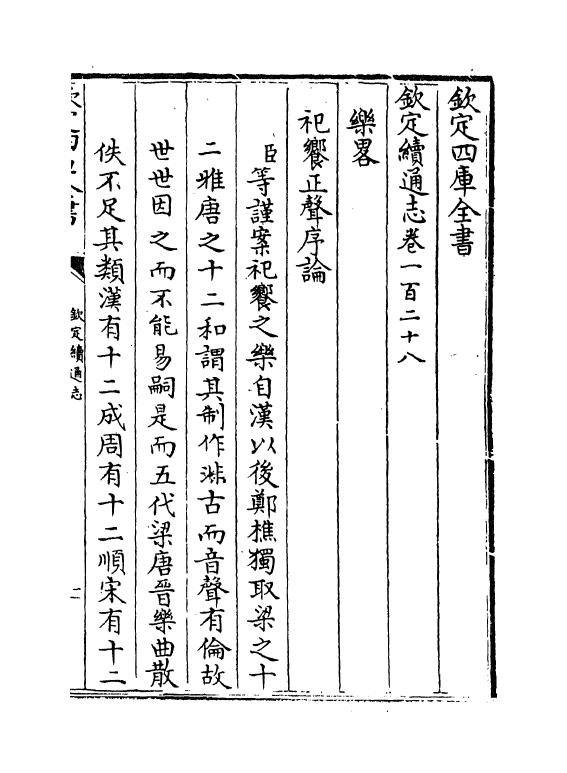 欽定四庫全書
欽定續通志卷一百二十八
樂畧
祀饗正聲序論
臣等謹案祀饗之樂自漢以後鄭樵獨取梁之十
二雅唐之十二和謂其制作非古而音聲有倫故
世世因之而不能易嗣是而五代梁唐晉樂曲散
佚不足其類漢有十二成周有十二順宋有十二
欽定續通志